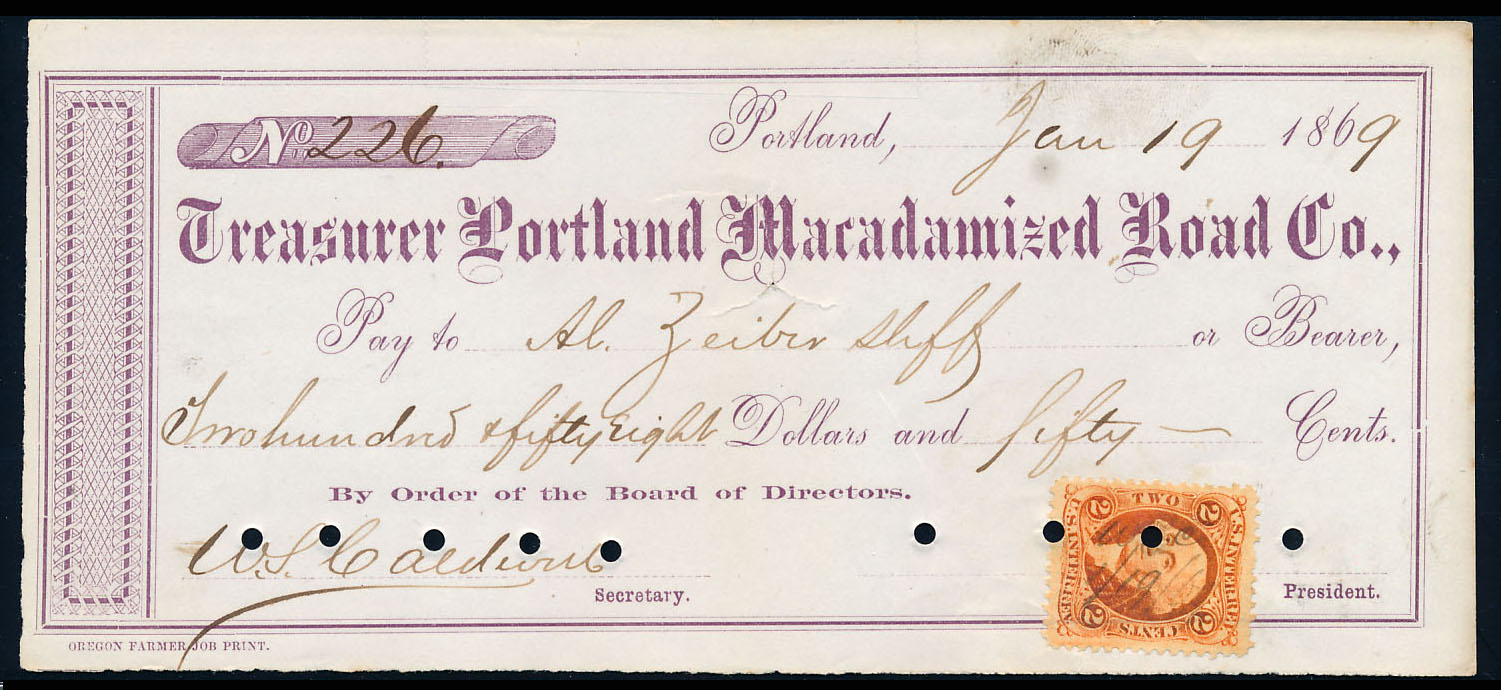 No 226. Portland, Jan 19 1869
Treasurer Portland Macadamized Road Co.,
Pay to Al. Zeiber shff or Bearer,
Two hundred & fifty Eight Dollars and fifty — Cents.
By Order of the Board of Directors.
W.S. Caldwell
Secretary. President.
OREGON FARMER JOB PRINT.
TWO
U.S. INTER. REV.
U.S. INTER. REV.
CENTS
2 2
2 2